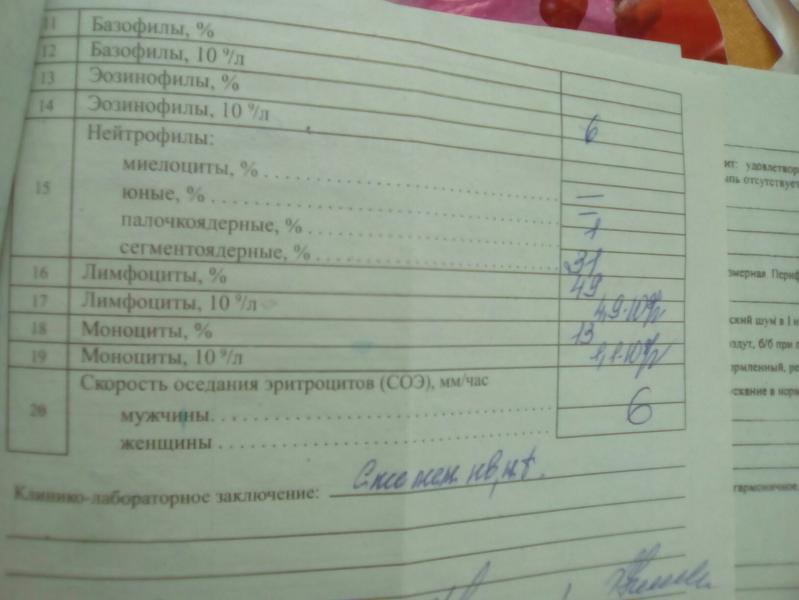 11 Базофилы, %
12 Базофилы, 10 ⁹/л
13 Эозинофилы, %
14 Эозинофилы, 10 ⁹/л 6
15 Нейтрофилы:
миелоциты, % . . . . . . . . . . –
юные, % . . . . . . . . . . –
палочкоядерные, % . . . . . . . . . . 1
сегментоядерные, % . . . . . . . . . . 31
16 Лимфоциты, % 49
17 Лимфоциты, 10 ⁹/л 4,9·10⁹/л
18 Моноциты, % 13
19 Моноциты, 10 ⁹/л 1,1·10⁹/л
20 Скорость оседания эритроцитов (СОЭ), мм/час
мужчины. . . . . . . . . . 6
женщины . . . . . . . . . .
Клинико-лабораторное заключение:
удовлетвор
отсутствует
змерная. Периф
ский шум в I
здут, б/б при п
ормленный, ре
ускание в норм
гармоничное,